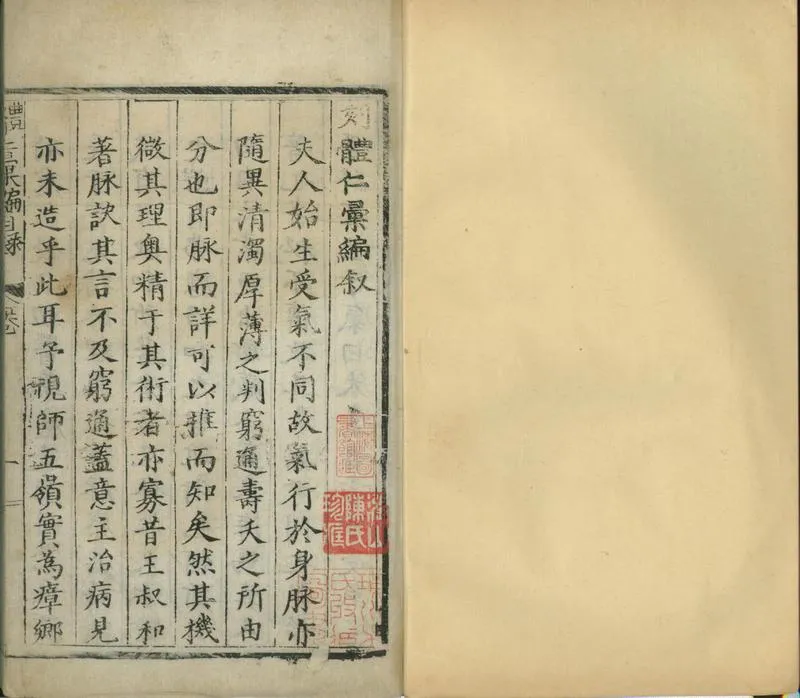 刻體仁彙編叙
夫人始生受氣不同故氣行於身脉亦
隨異清濁厚薄之判窮通壽夭之所由
分也即脉而詳可以推而知矣然其機
微其理奥精于其術者亦寡昔王叔和
著脉訣其言不及窮通蓋意主治病見
亦未造乎此耳予視師五嶺實為瘴鄉
體仁彙編目錄
陳氏